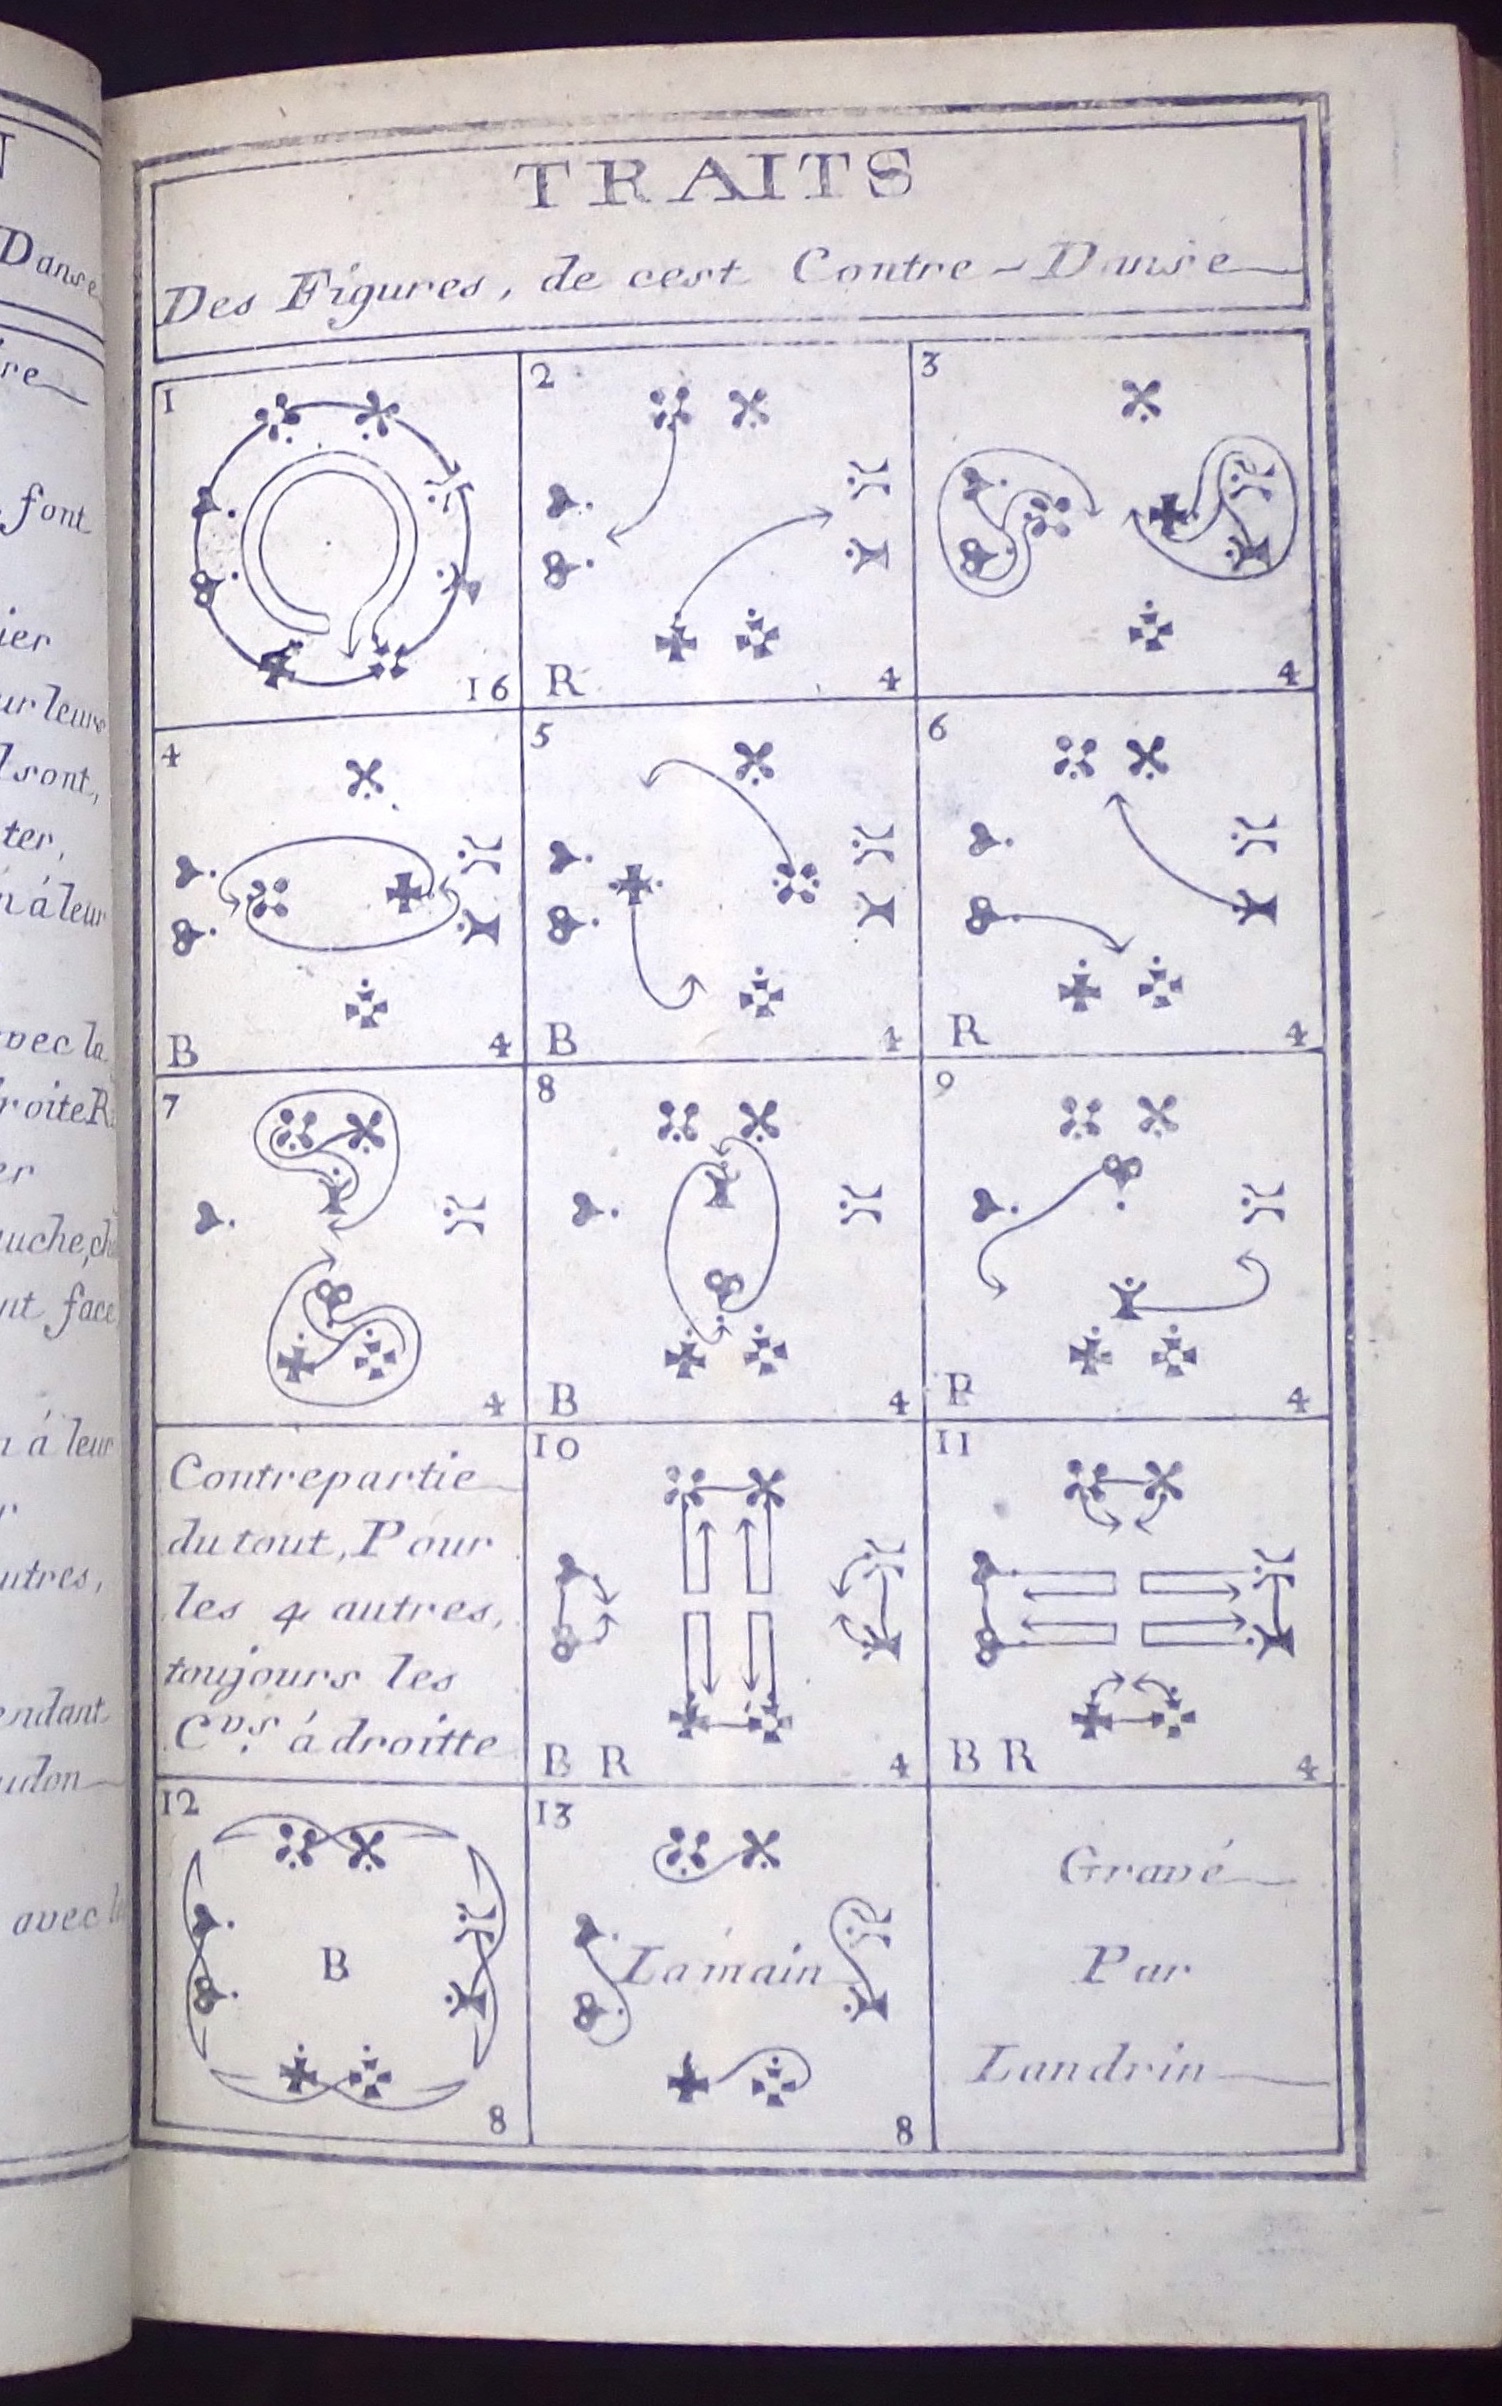 TRAITS
Des Figures, de cest Contre-Danse
1
16
2
R
4
3
4
4
B
4
5
B
4
6
R
4
7
4
8
B
4
9
R
4
Contrepartie
du tout, Pour
les 4 autres,
toujours les
Cvs. à droitte
10
B R
4
11
B R
4
12
B
8
13
La main
8
Gravé
Par
Landrin
Danse
font
ier
ur leurs
sont,
ter,
à leur
avec la
roite R
er
face
à leur
autres,
avec